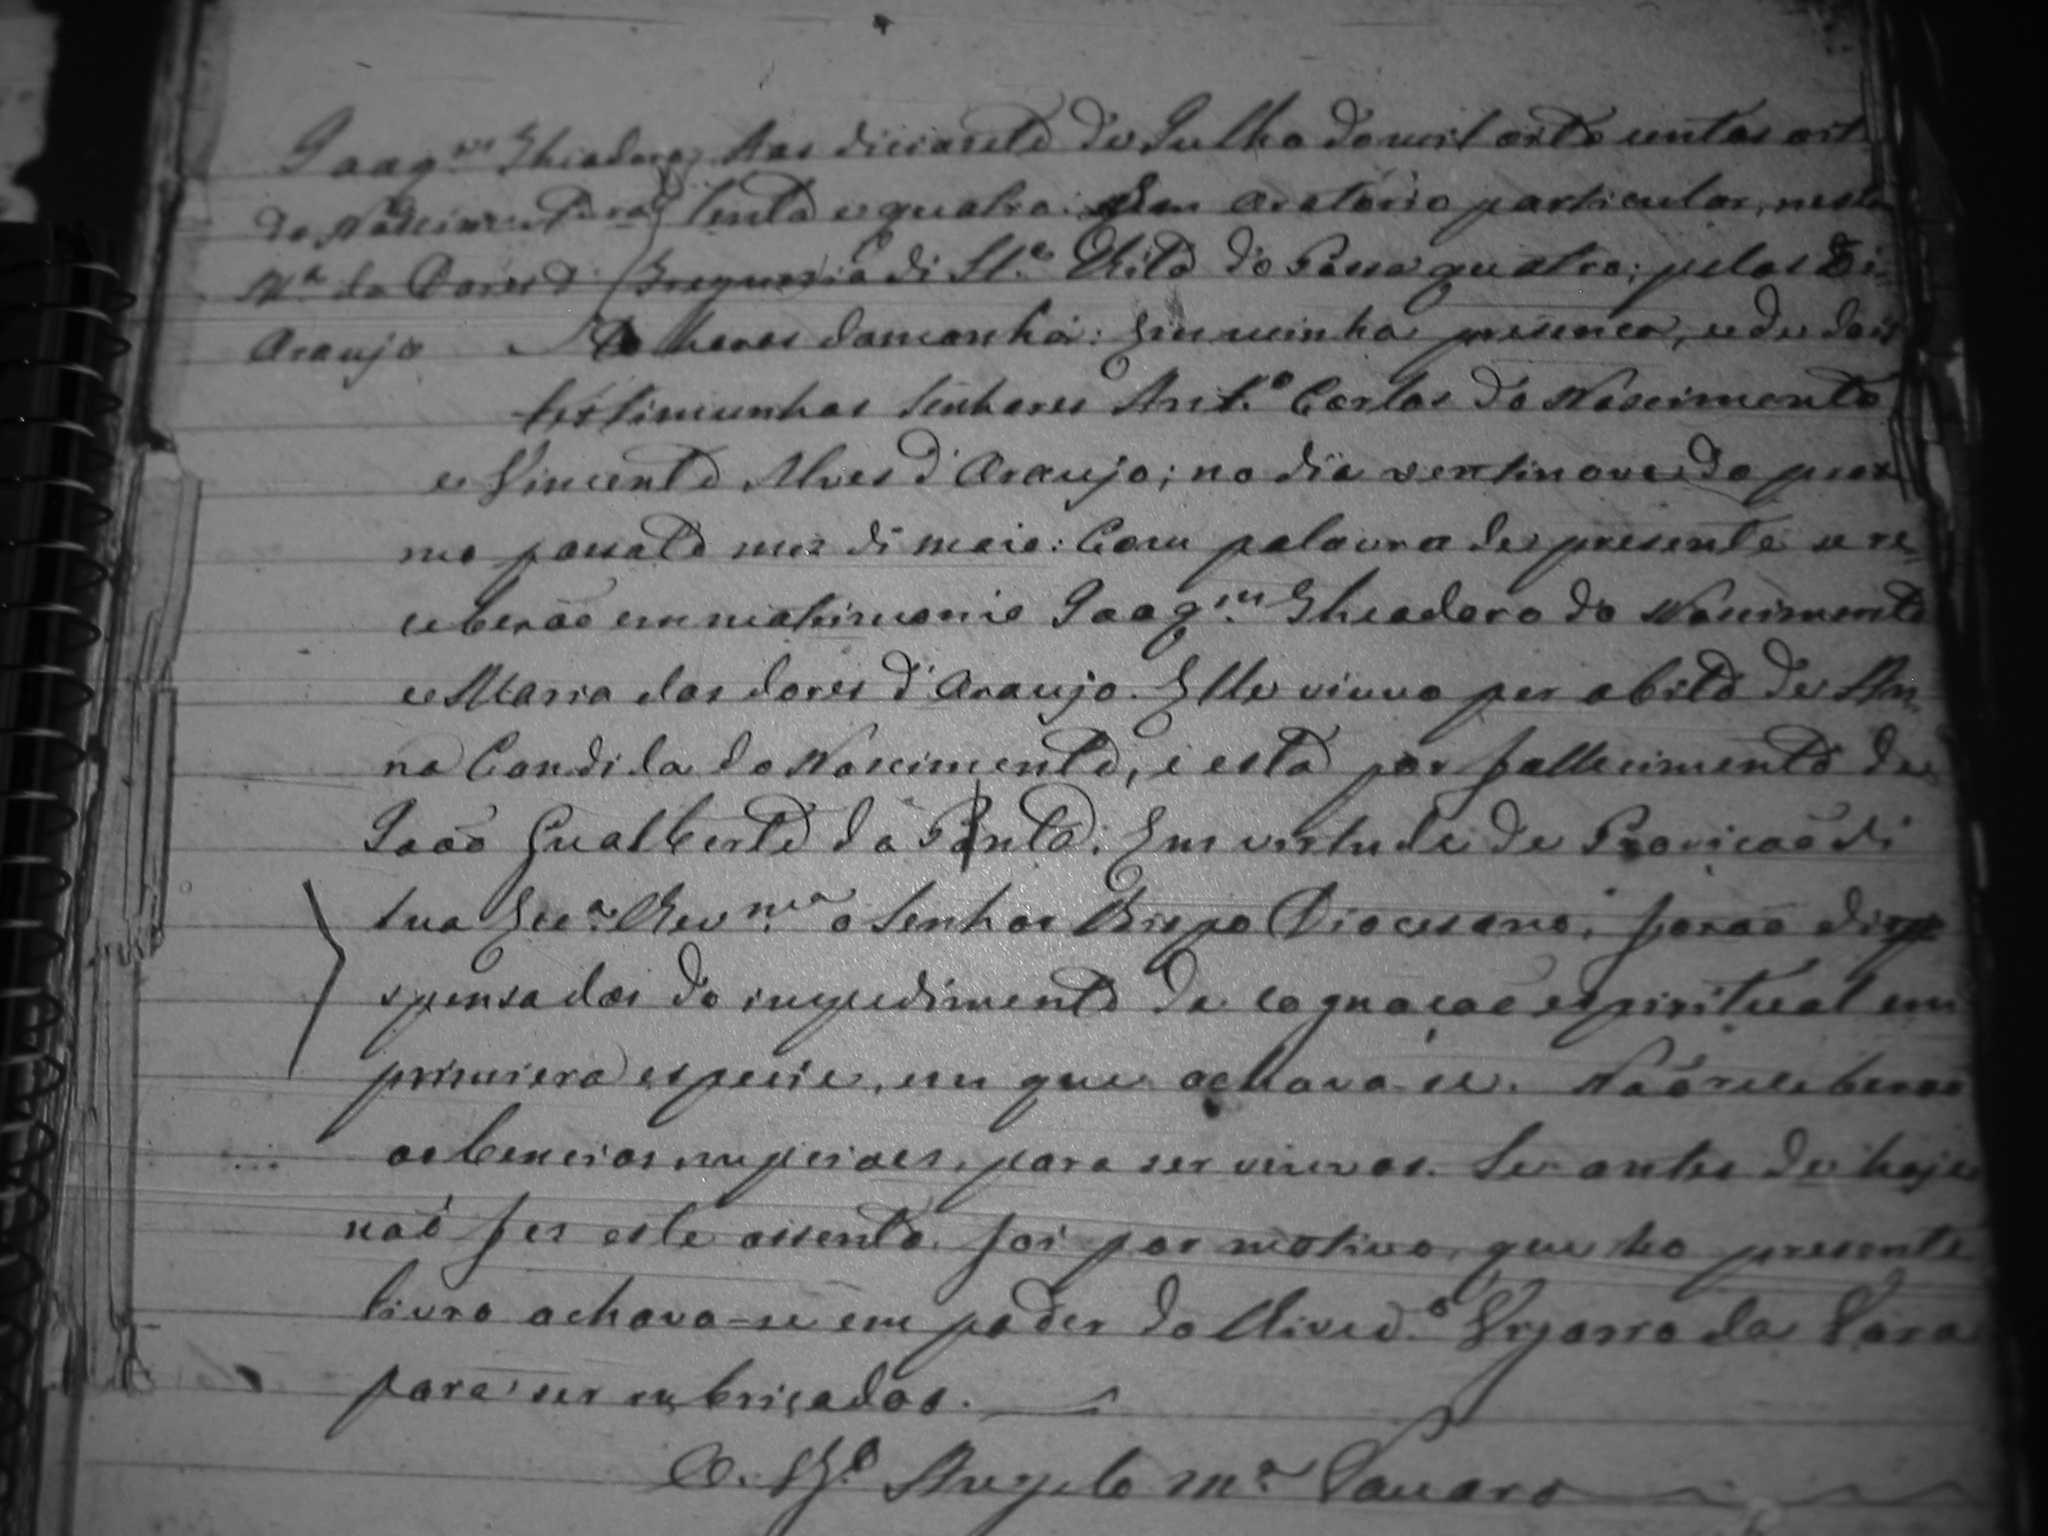 Joaqm Theadoro
do Nascimento
Ma da Dores d'
Araujo
Aos diciasete de Julho de mil oito centos oit
tenta e quatro: Em Oratório particular, nesta
Freguezia di Sta Rita do Passa quatro; pelas
horas damanhá: Em minha presença, e de dois
testimunhas Senhores Anto Carlos do Nascimento
e Vincente Alves d'Araujo; no dia ventinove do
mo passato mez di maio: Com palavra de presente se re,
ceberaõ em matrimonio Joaqm Theadoro do Nascimento
e Maria das dores d'Araujo. Elle viuvo per obito de An,
na Candida do Nascimento, e esta por fallecimento de
Joaõ Gualberto da Ponte. Em virtude de Provicaõ di
sua Excia Revma o Senhor Bispo Diocesano, foraõ disp
spensados do impedimento de cognaçaõ espiritual em
primiera especie, em que achava-se. Naõ receberaõ
as bencios nupciaes, para ser viuvos. Se antes de hoje
naõ fez este assento, foi por motivo, que ho presente
livro achava-se em poder do Rivedo Vigario da Vara
para ser rubriçados.
O Vigo Angelo Ma